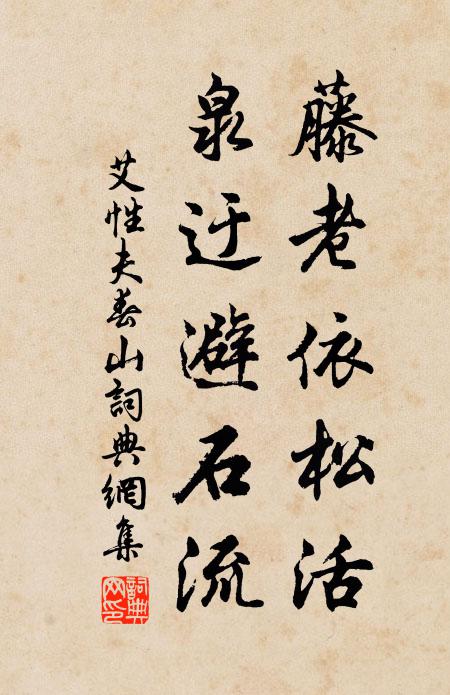 藤老依松活
泉迂避石流
艾性夫春山詞典網集
詞典网印